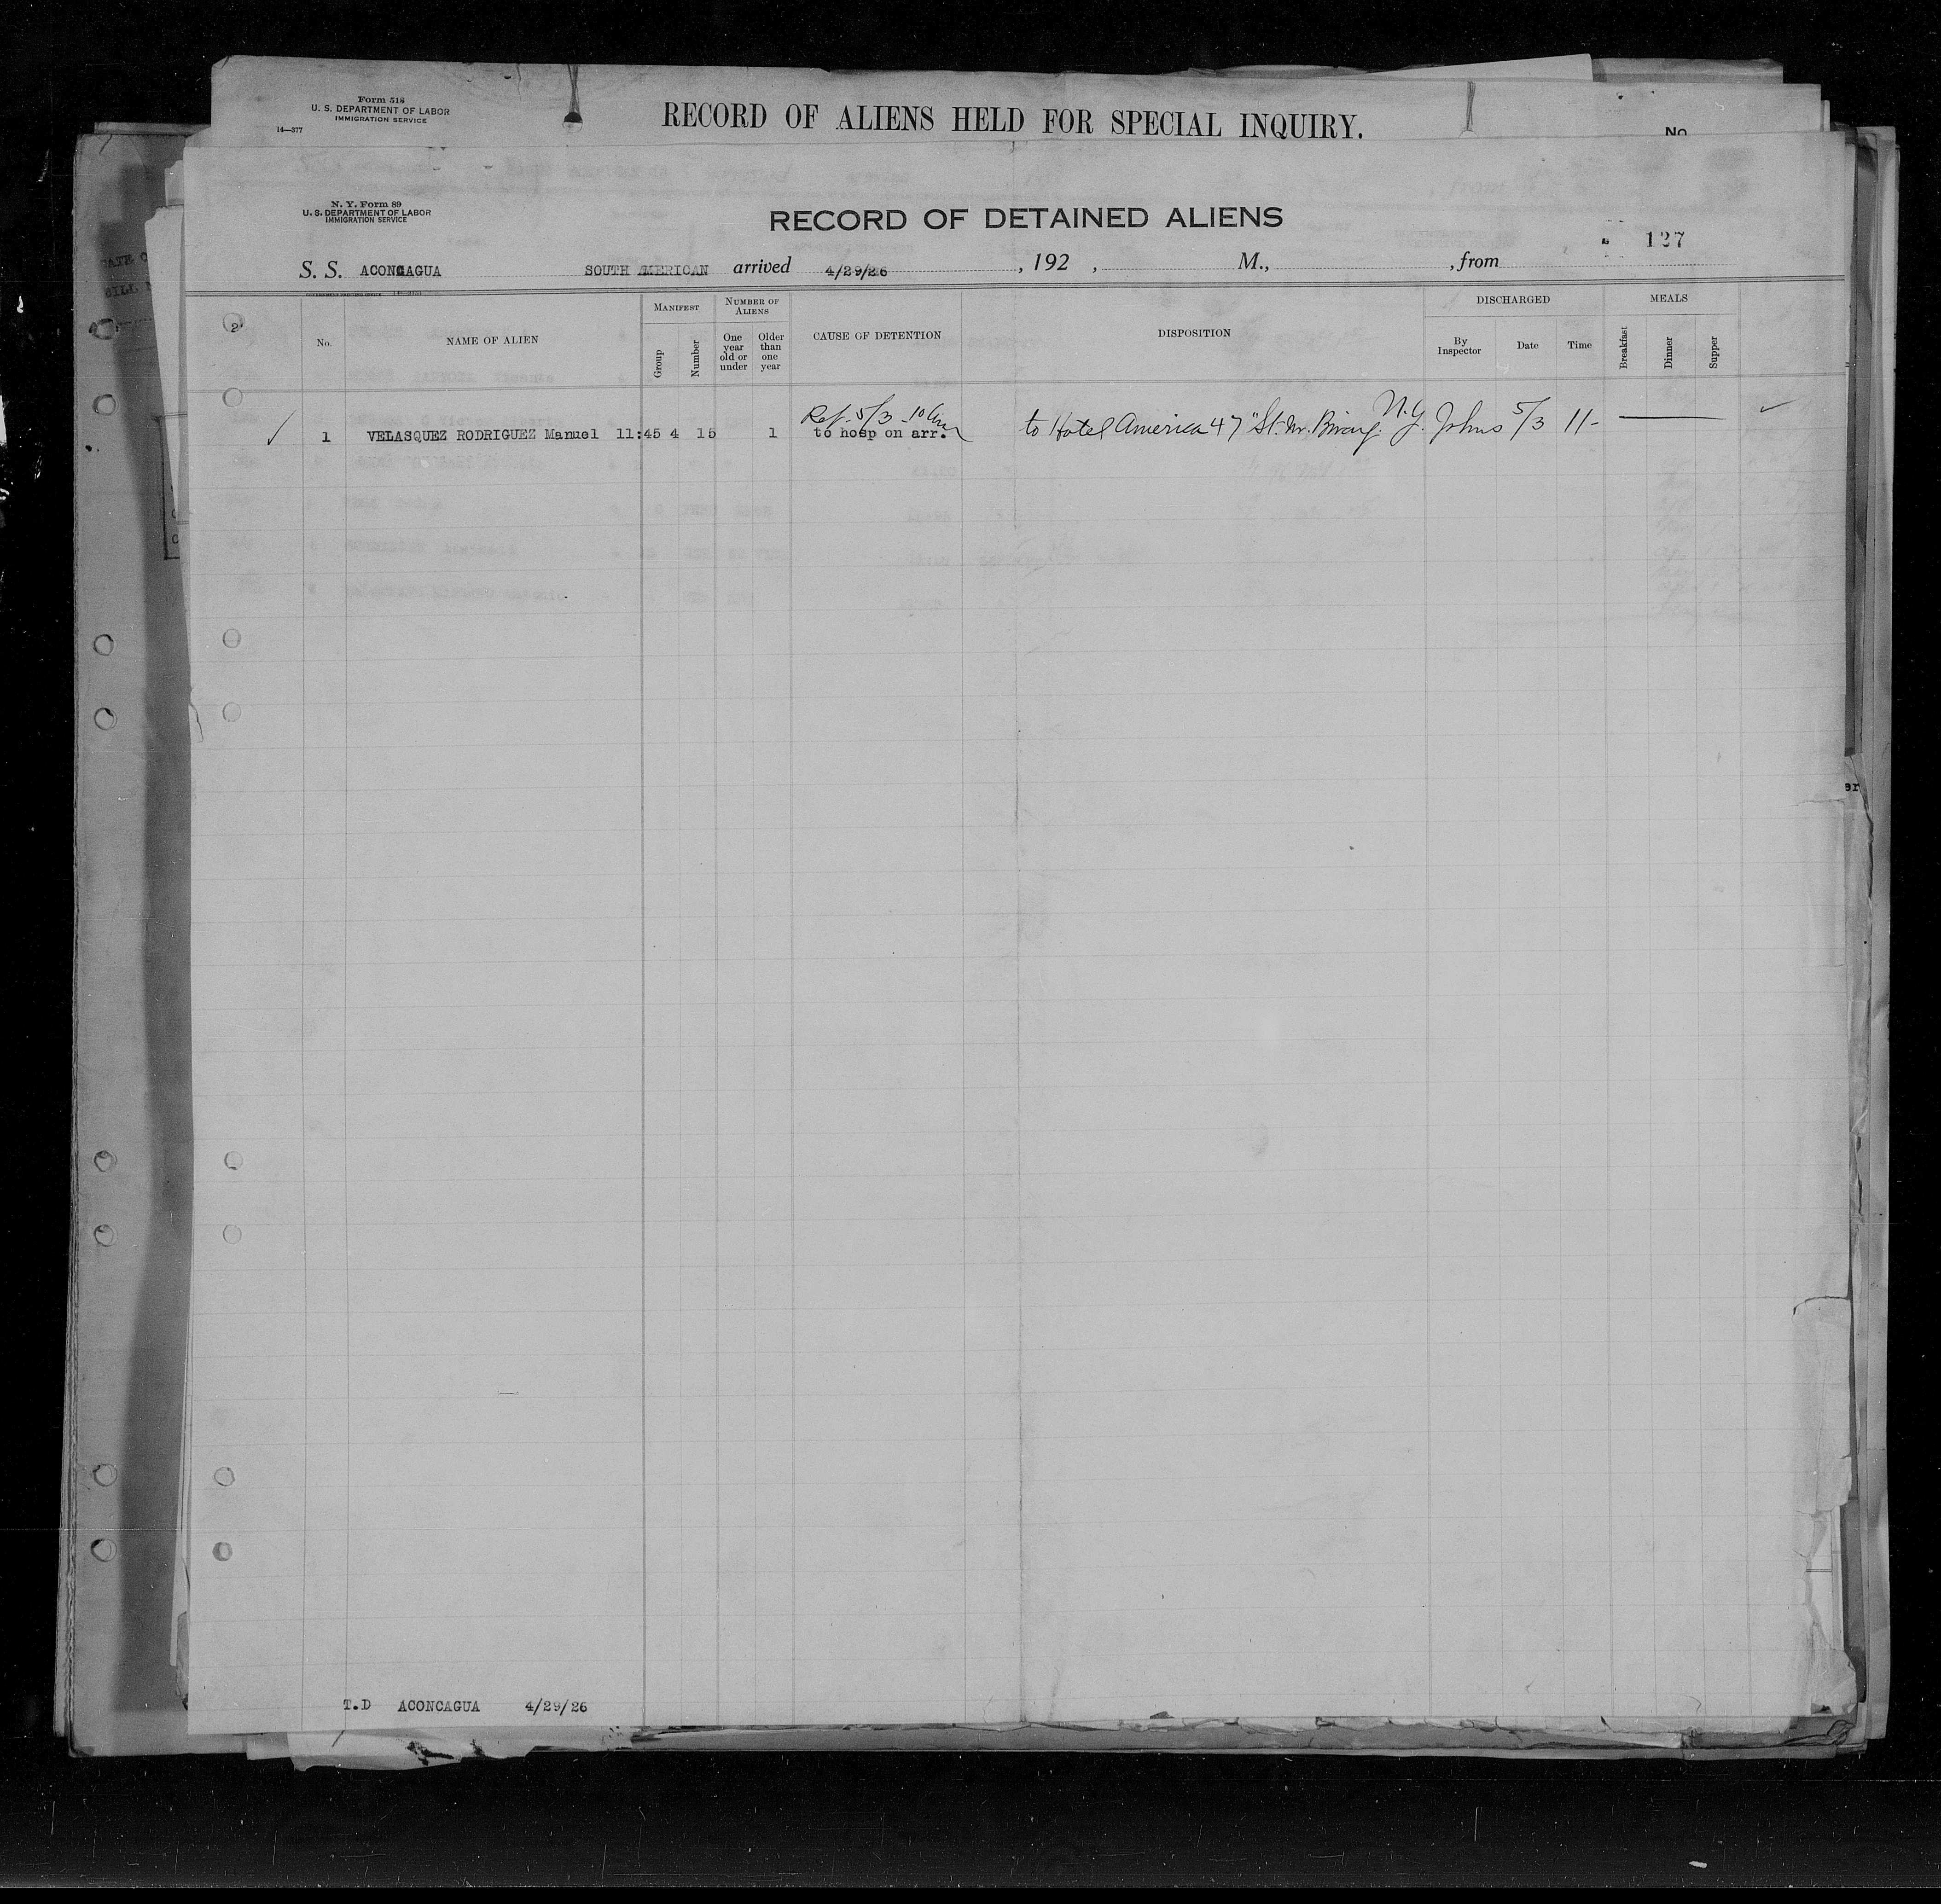 Form 518
U. S. DEPARTMENT OF LABOR
IMMIGRATION SERVICE
14—377
RECORD OF ALIENS HELD FOR SPECIAL INQUIRY.
No.
N. Y. Form 89
U. S. DEPARTMENT OF LABOR
IMMIGRATION SERVICE
RECORD OF DETAINED ALIENS
127
S. S. ACONCAGUA SOUTH AMERICAN arrived 4/29/26 , 192 , M., , from
2
No. NAME OF ALIEN MANIFEST Group Number NUMBER OF ALIENS One year old or under Older than one year CAUSE OF DETENTION DISPOSITION DISCHARGED By Inspector Date Time MEALS Breakfast Dinner Supper
Ref. 5/3 - 10 am
✓ 1 VELASQUEZ RODRIGUEZ Manuel 11:45 4 15 1 to hosp on arr. to Hotel America 47" St. nr. Bway. N.Y. Johns 5/3 11- ✓
T.D ACONCAGUA 4/29/26